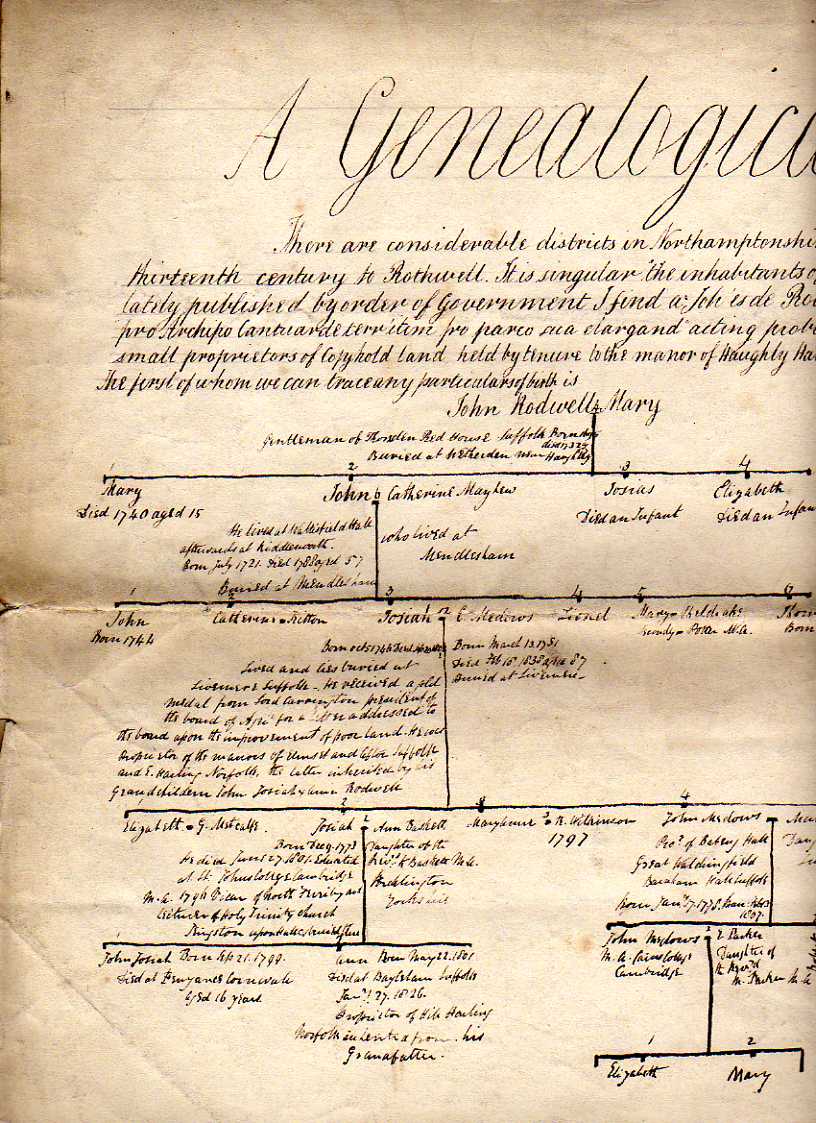 A Genealogica
There are considerable districts in Northamptonshi
thirteenth century to Rothwell. It is singular the inhabitants o
lately published by order of Government I find a Joh es de Ro
pro Archipo Cantuar de territim pro parco sua clargand acting prob
small proprietors of Copyhold land held by tenure to the manor of Haughly Ha
The first of whom we can trace any particulars of birth is
John Rodwell Mary
Gentleman of Thornden Red House Suffolk Born
died
Buried at Wetherden near Haughly
1 2 3 4
Mary John Catherine Mayhew Josias Elizabeth
Died 1740 aged 15 Died an Infant Died an Infan
He lived at Hall who lived at
afterwards at Mendlesham
Born July 1721. Died 1788 aged 57
Buried at Mendlesham
1 2 3 4 5 6
John Catherine = Josiah = E. Medows Lionel Mary =
Born 1744 Born
Born Born March 13. 1751
Lived and lies buried at Died Feb 18. 1838 aged 87
Livermere Suffolk. He received a gold Buried at Livermere
medal from Lord Carrington president of
the board of Agri. for a letter addressed to
the board upon the improvement of poor land. He was
proprietor of the manors of Elmset and Suffolk
and E. Harling Norfolk, the latter inherited by his
Grandchildren John Josiah & Anne Rodwell
1 2 3 4
Elizabeth = G. Metcalfe. Josiah = Ann Baskett Maryanne = R. Wilkinson John Medows =
Born Dec 9. 1773 Daughter of the 1797
He died June 27. 1801. Educated Revd. K Baskett M.A.
at St. Johns College Cambridge Pocklington
M.A. 1796 Vicar of North Ferriby and Yorkshire
lecturer of Holy Trinity church
Kingston upon Hull
of Hall
Great Waldingfield
Barham Hall Suffolk
Born Jany. 7. 1778.
1 2
John Josiah Born Sep 21. 1799. Ann Born May 22. 1801
Died at Penzance Cornwall Died at Baylham Suffolk
aged 16 years Jany. 27. 1826.
Proprietor of Harling
Norfolk inherited from his
Grandfather.
John Medows = E Parker
M.A. Caius College Daughter of
Cambridge the Revd.
M. Parker M.A
1 2
Elizabeth Mary